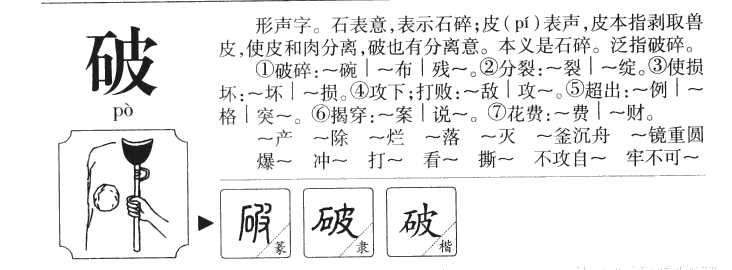 破
pò
形声字。石表意,表示石碎;皮(pí)表声,皮本指剥取兽
皮,使皮和肉分离,破也有分离意。本义是石碎。泛指破碎。
①破碎:～碗｜～布｜残～。②分裂:～裂｜～绽。③使损
坏:～坏｜～损。④攻下;打败:～敌｜攻～。⑤超出:～例｜～
格｜突～。⑥揭穿:～案｜说～。⑦花费:～费｜～财。
～产 ～除 ～烂 ～落 ～灭 ～釜沉舟 ～镜重圆
爆～ 冲～ 打～ 看～ 撕～ 不攻自～ 牢不可～
破 篆
破 隶
破 楷